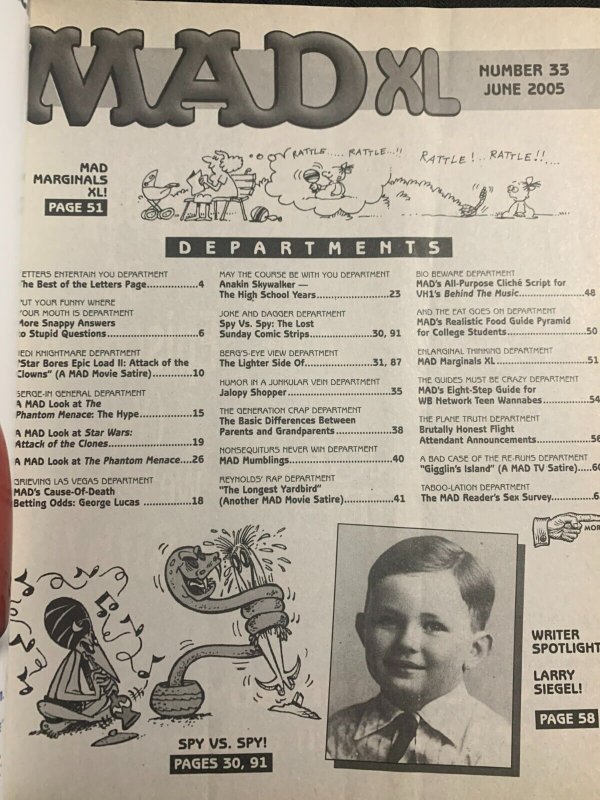 MAD XL
NUMBER 33
JUNE 2005
MAD
MARGINALS
XL!
PAGE 51
RATTLE.... RATTLE...!!
RATTLE!.. RATTLE!!....
DEPARTMENTS
ETTERS ENTERTAIN YOU DEPARTMENT
he Best of the Letters Page..............4
UT YOUR FUNNY WHERE
OUR MOUTH IS DEPARTMENT
More Snappy Answers
o Stupid Questions.......................6
JEDI KNIGHTMARE DEPARTMENT
"Star Bores Epic Load II: Attack of the
Clowns" (A MAD Movie Satire)..........10
SERGE-IN GENERAL DEPARTMENT
A MAD Look at The
Phantom Menace: The Hype..............15
A MAD Look at Star Wars:
Attack of the Clones.....................19
A MAD Look at The Phantom Menace....26
GRIEVING LAS VEGAS DEPARTMENT
MAD's Cause-Of-Death
Betting Odds: George Lucas .............18
MAY THE COURSE BE WITH YOU DEPARTMENT
Anakin Skywalker —
The High School Years..................23
JOKE AND DAGGER DEPARTMENT
Spy Vs. Spy: The Lost
Sunday Comic Strips................30, 91
BERG'S-EYE VIEW DEPARTMENT
The Lighter Side Of.................31, 87
HUMOR IN A JUNKULAR VEIN DEPARTMENT
Jalopy Shopper.........................35
THE GENERATION CRAP DEPARTMENT
The Basic Differences Between
Parents and Grandparents..............38
NONSEQUITURS NEVER WIN DEPARTMENT
MAD Mumblings..........................40
REYNOLDS' RAP DEPARTMENT
"The Longest Yardbird"
(Another MAD Movie Satire)............41
BIO BEWARE DEPARTMENT
MAD's All-Purpose Cliché Script for
VH1's Behind The Music.................48
AND THE EAT GOES ON DEPARTMENT
MAD's Realistic Food Guide Pyramid
for College Students....................50
ENLARGINAL THINKING DEPARTMENT
MAD Marginals XL .......................51
THE GUIDES MUST BE CRAZY DEPARTMENT
MAD's Eight-Step Guide for
WB Network Teen Wannabes.............54
THE PLANE TRUTH DEPARTMENT
Brutally Honest Flight
Attendant Announcements..............56
A BAD CASE OF THE RE-RUNS DEPARTMENT
"Gigglin's Island" (A MAD TV Satire).....60
TABOO-LATION DEPARTMENT
The MAD Reader's Sex Survey...........6
MOR
WRITER
SPOTLIGHT
LARRY
SIEGEL!
PAGE 58
SPY VS. SPY!
PAGES 30, 91